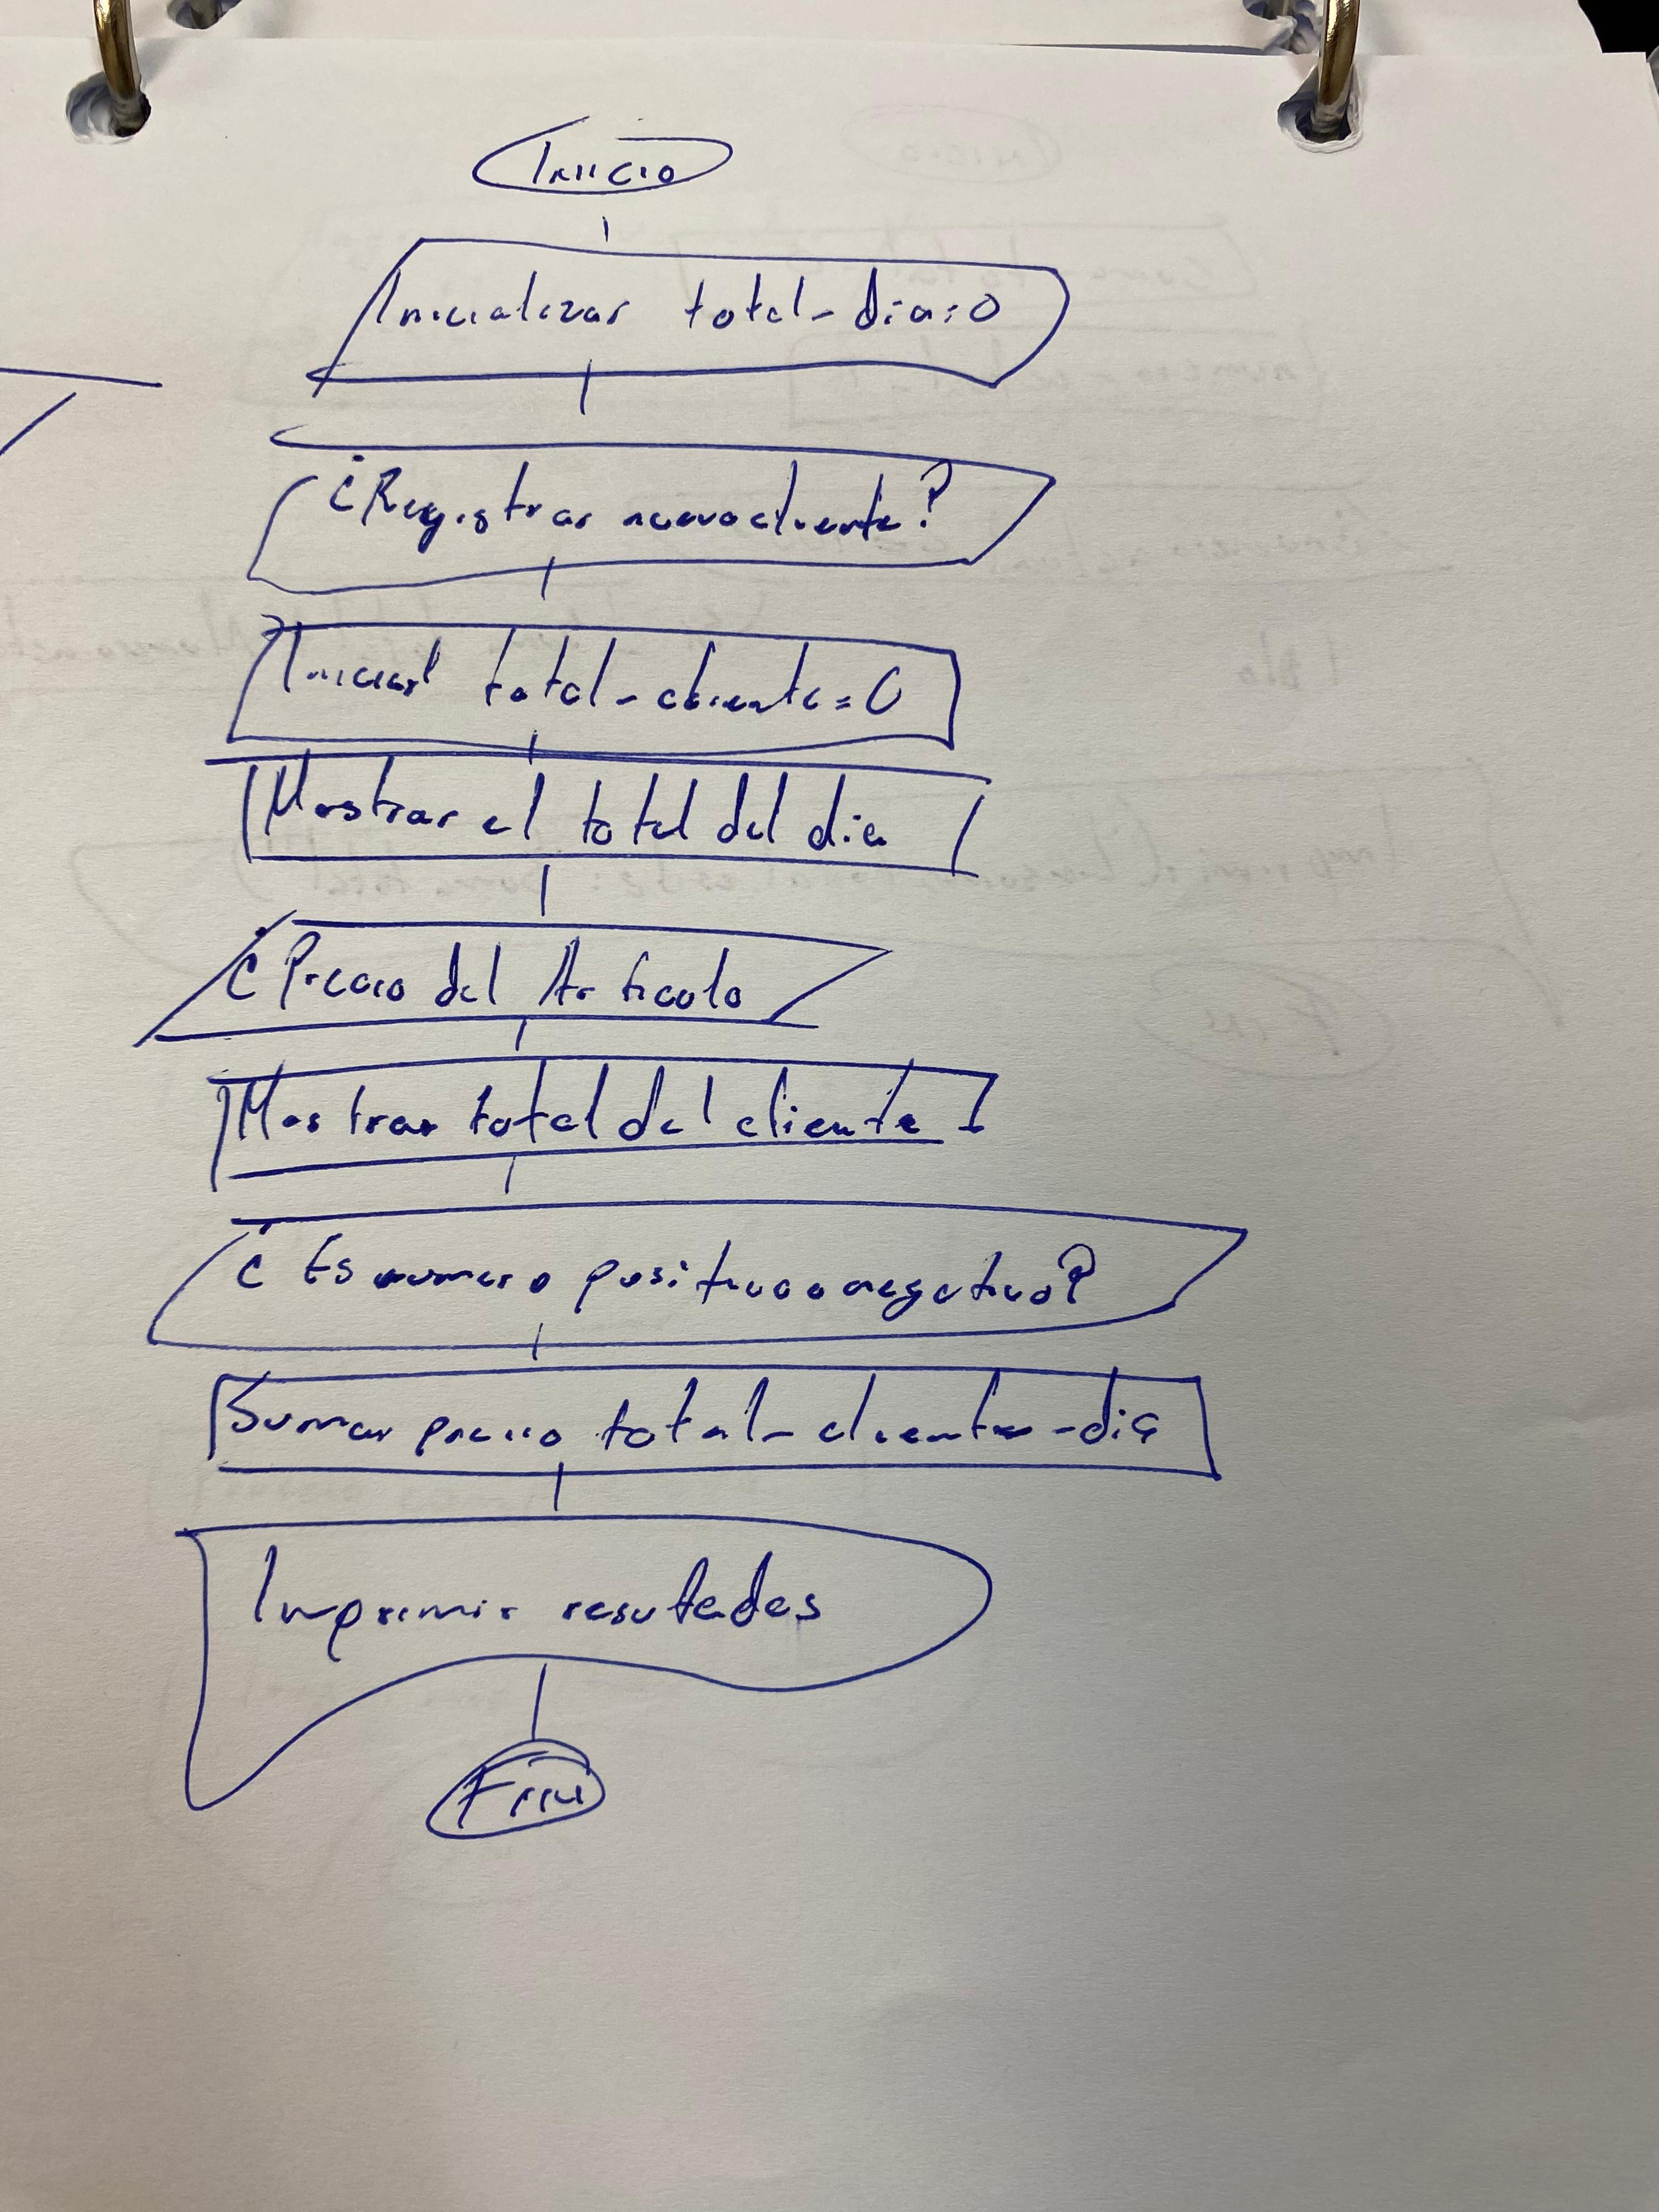 Inicio
Inicializar total-dia=0
¿Registrar nuevo cliente?
total-cliente=0
Mostrar el total del dia
¿Precio del Articulo
Mostrar total del cliente
¿Es numero positivo o negativo?
Sumar precio total-cliente-dia
Imprimir resultados
Fin